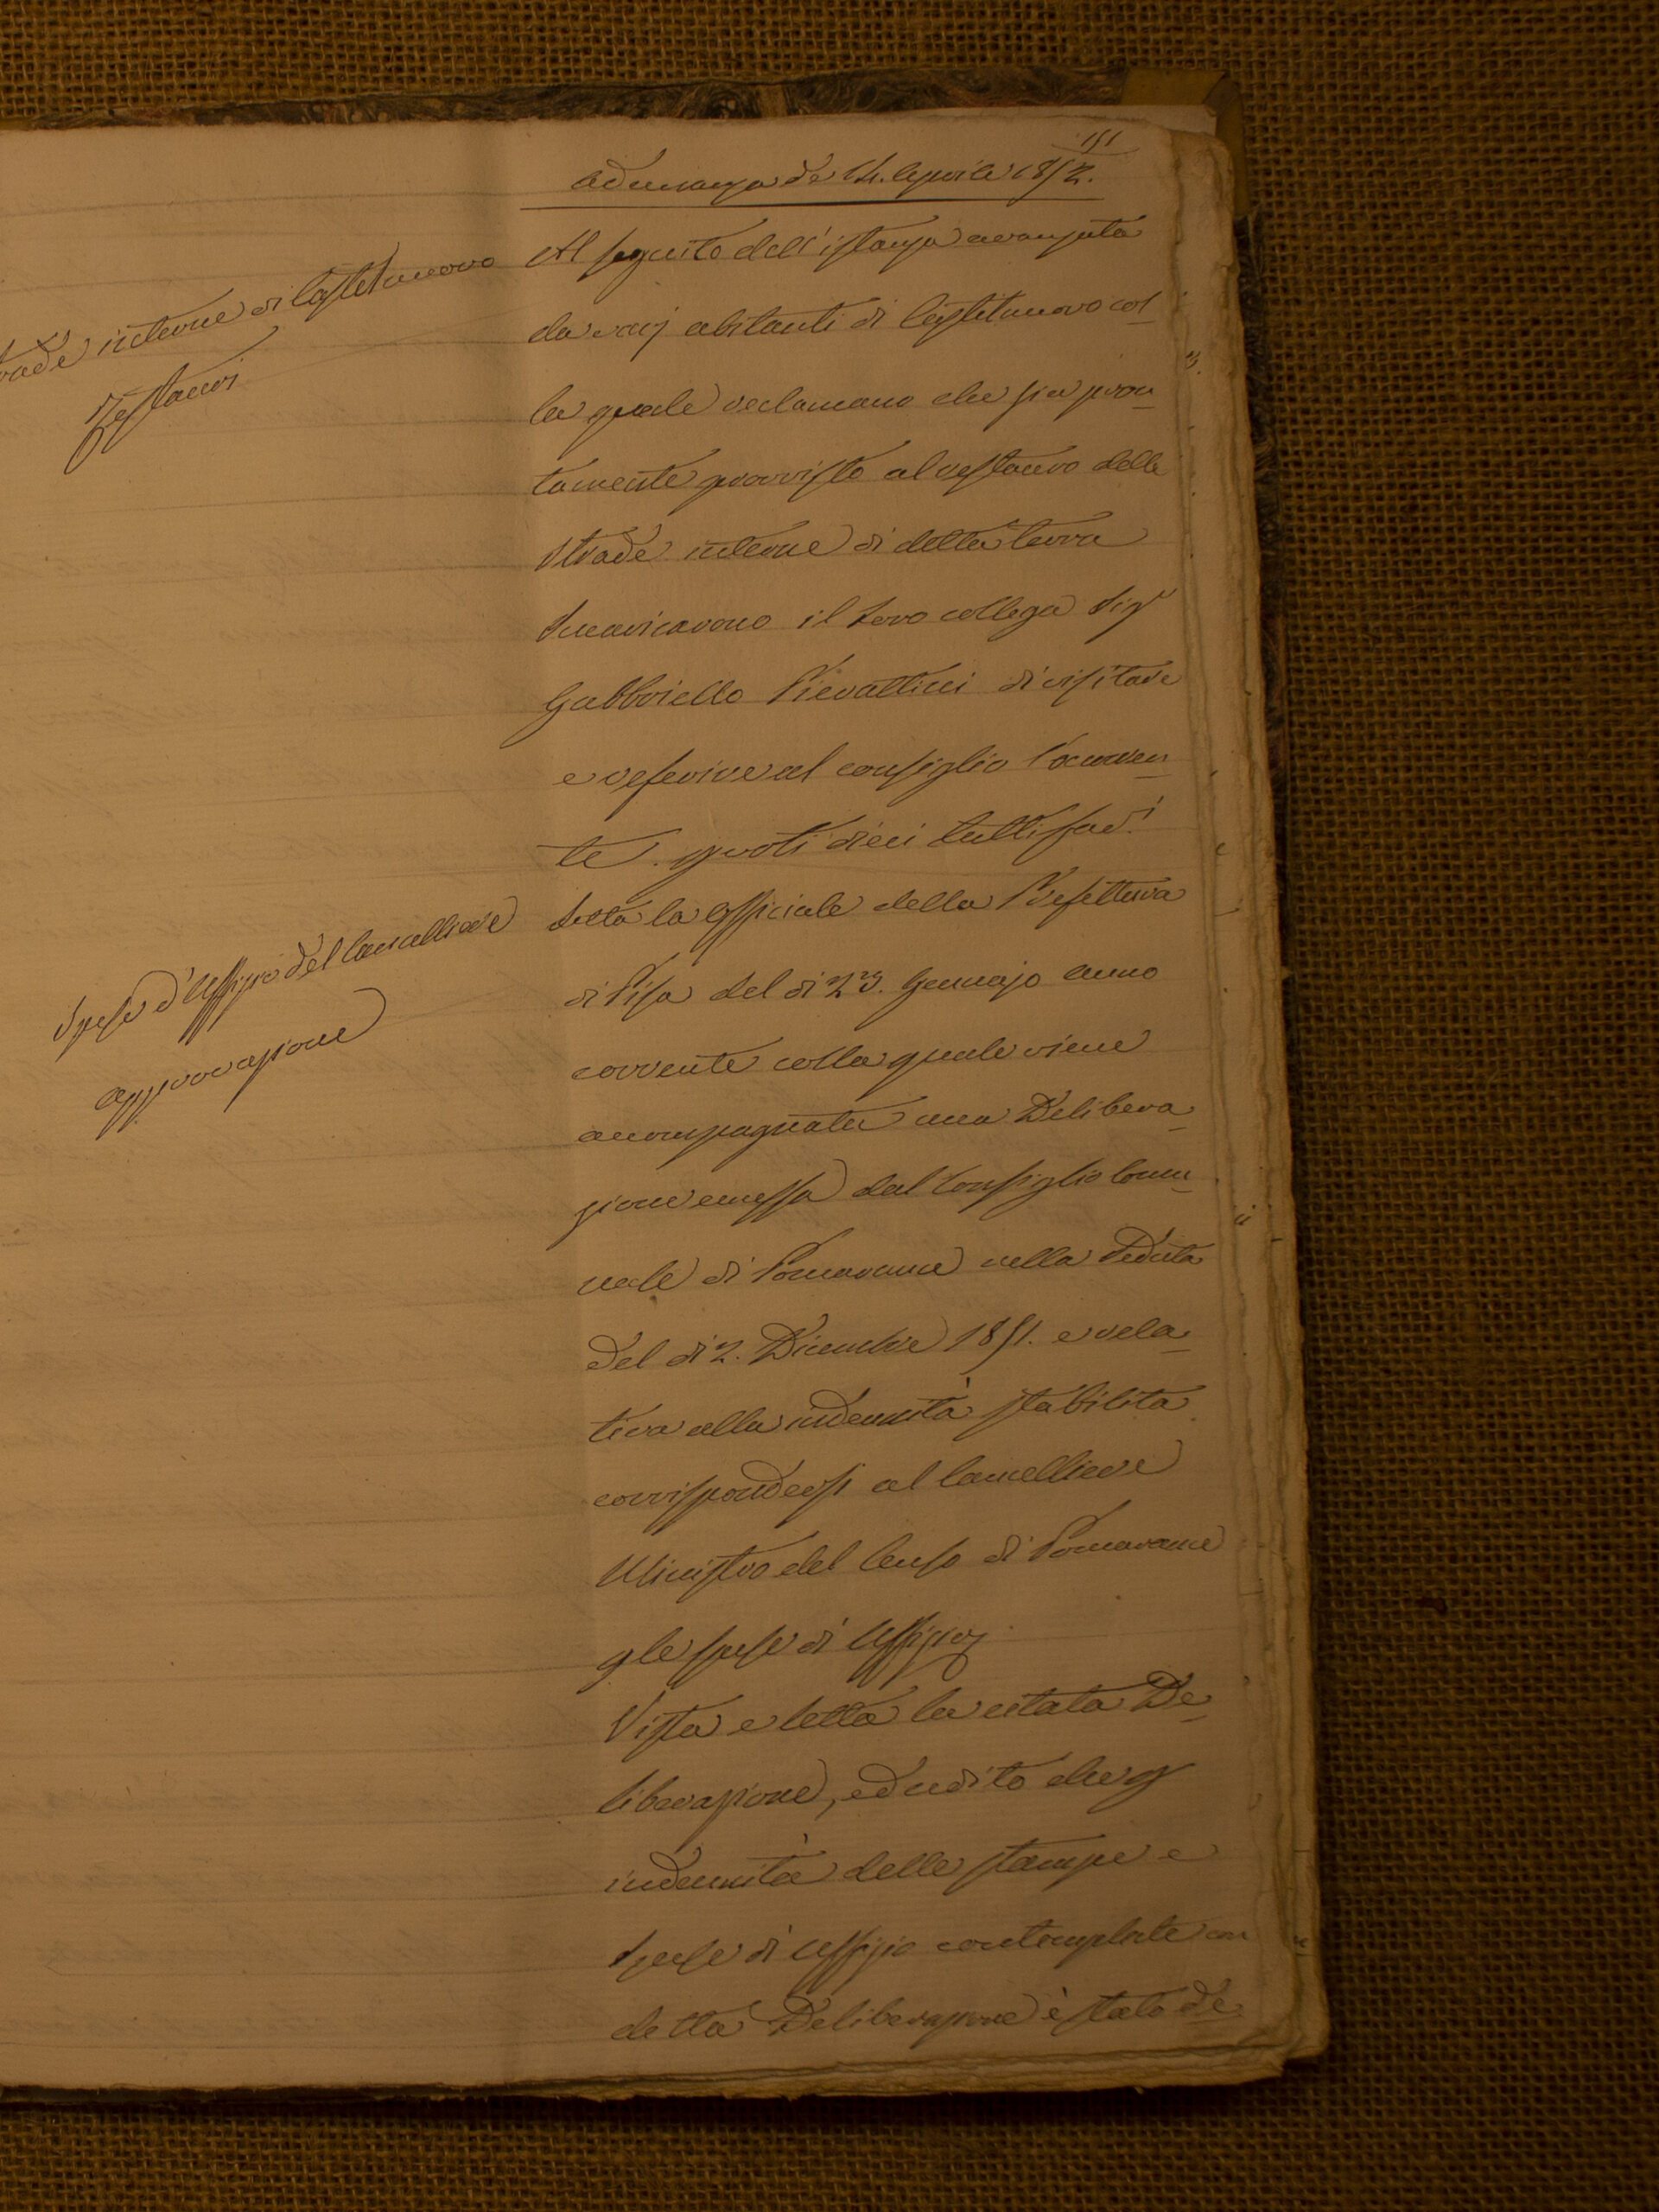 151
Adunanza de 14. Aprile 1852.
Strade interne di Castelnuovo
Restauri
Al seguito dell'istanza avanzata
da varj abitanti di Castelnuovo col_
la quale reclamano che sia pron_
tamente provvisto al restauro delle
strade interne di detta terra
Incaricarono il loro collega Sigr
Gabbriello Pierattini di visitare
e referire al consiglio l'occorren_
te. p voti dieci tutti favi
Spese d'Uffizio del Cancelliere
approvazione
Letta la Officiale della Prefettura
di Pisa del di 23. Gennajo anno
corrente colla quale viene
accompagnata una Delibera_
zione emessa dal Consiglio Comu_
nale di Pomarance nella Seduta
del di 2. Dicembre 1851. e rela_
tiva alla indennità stabilita
corrispondersi al Cancelliere
Ministro del Censo di Pomarance
p le spese di Uffizio
Vista e letta la citata De_
liberazione, ed udito che p
indennità delle stampe e
spese di uffizio contemplate con
detta Deliberazione è stato de_